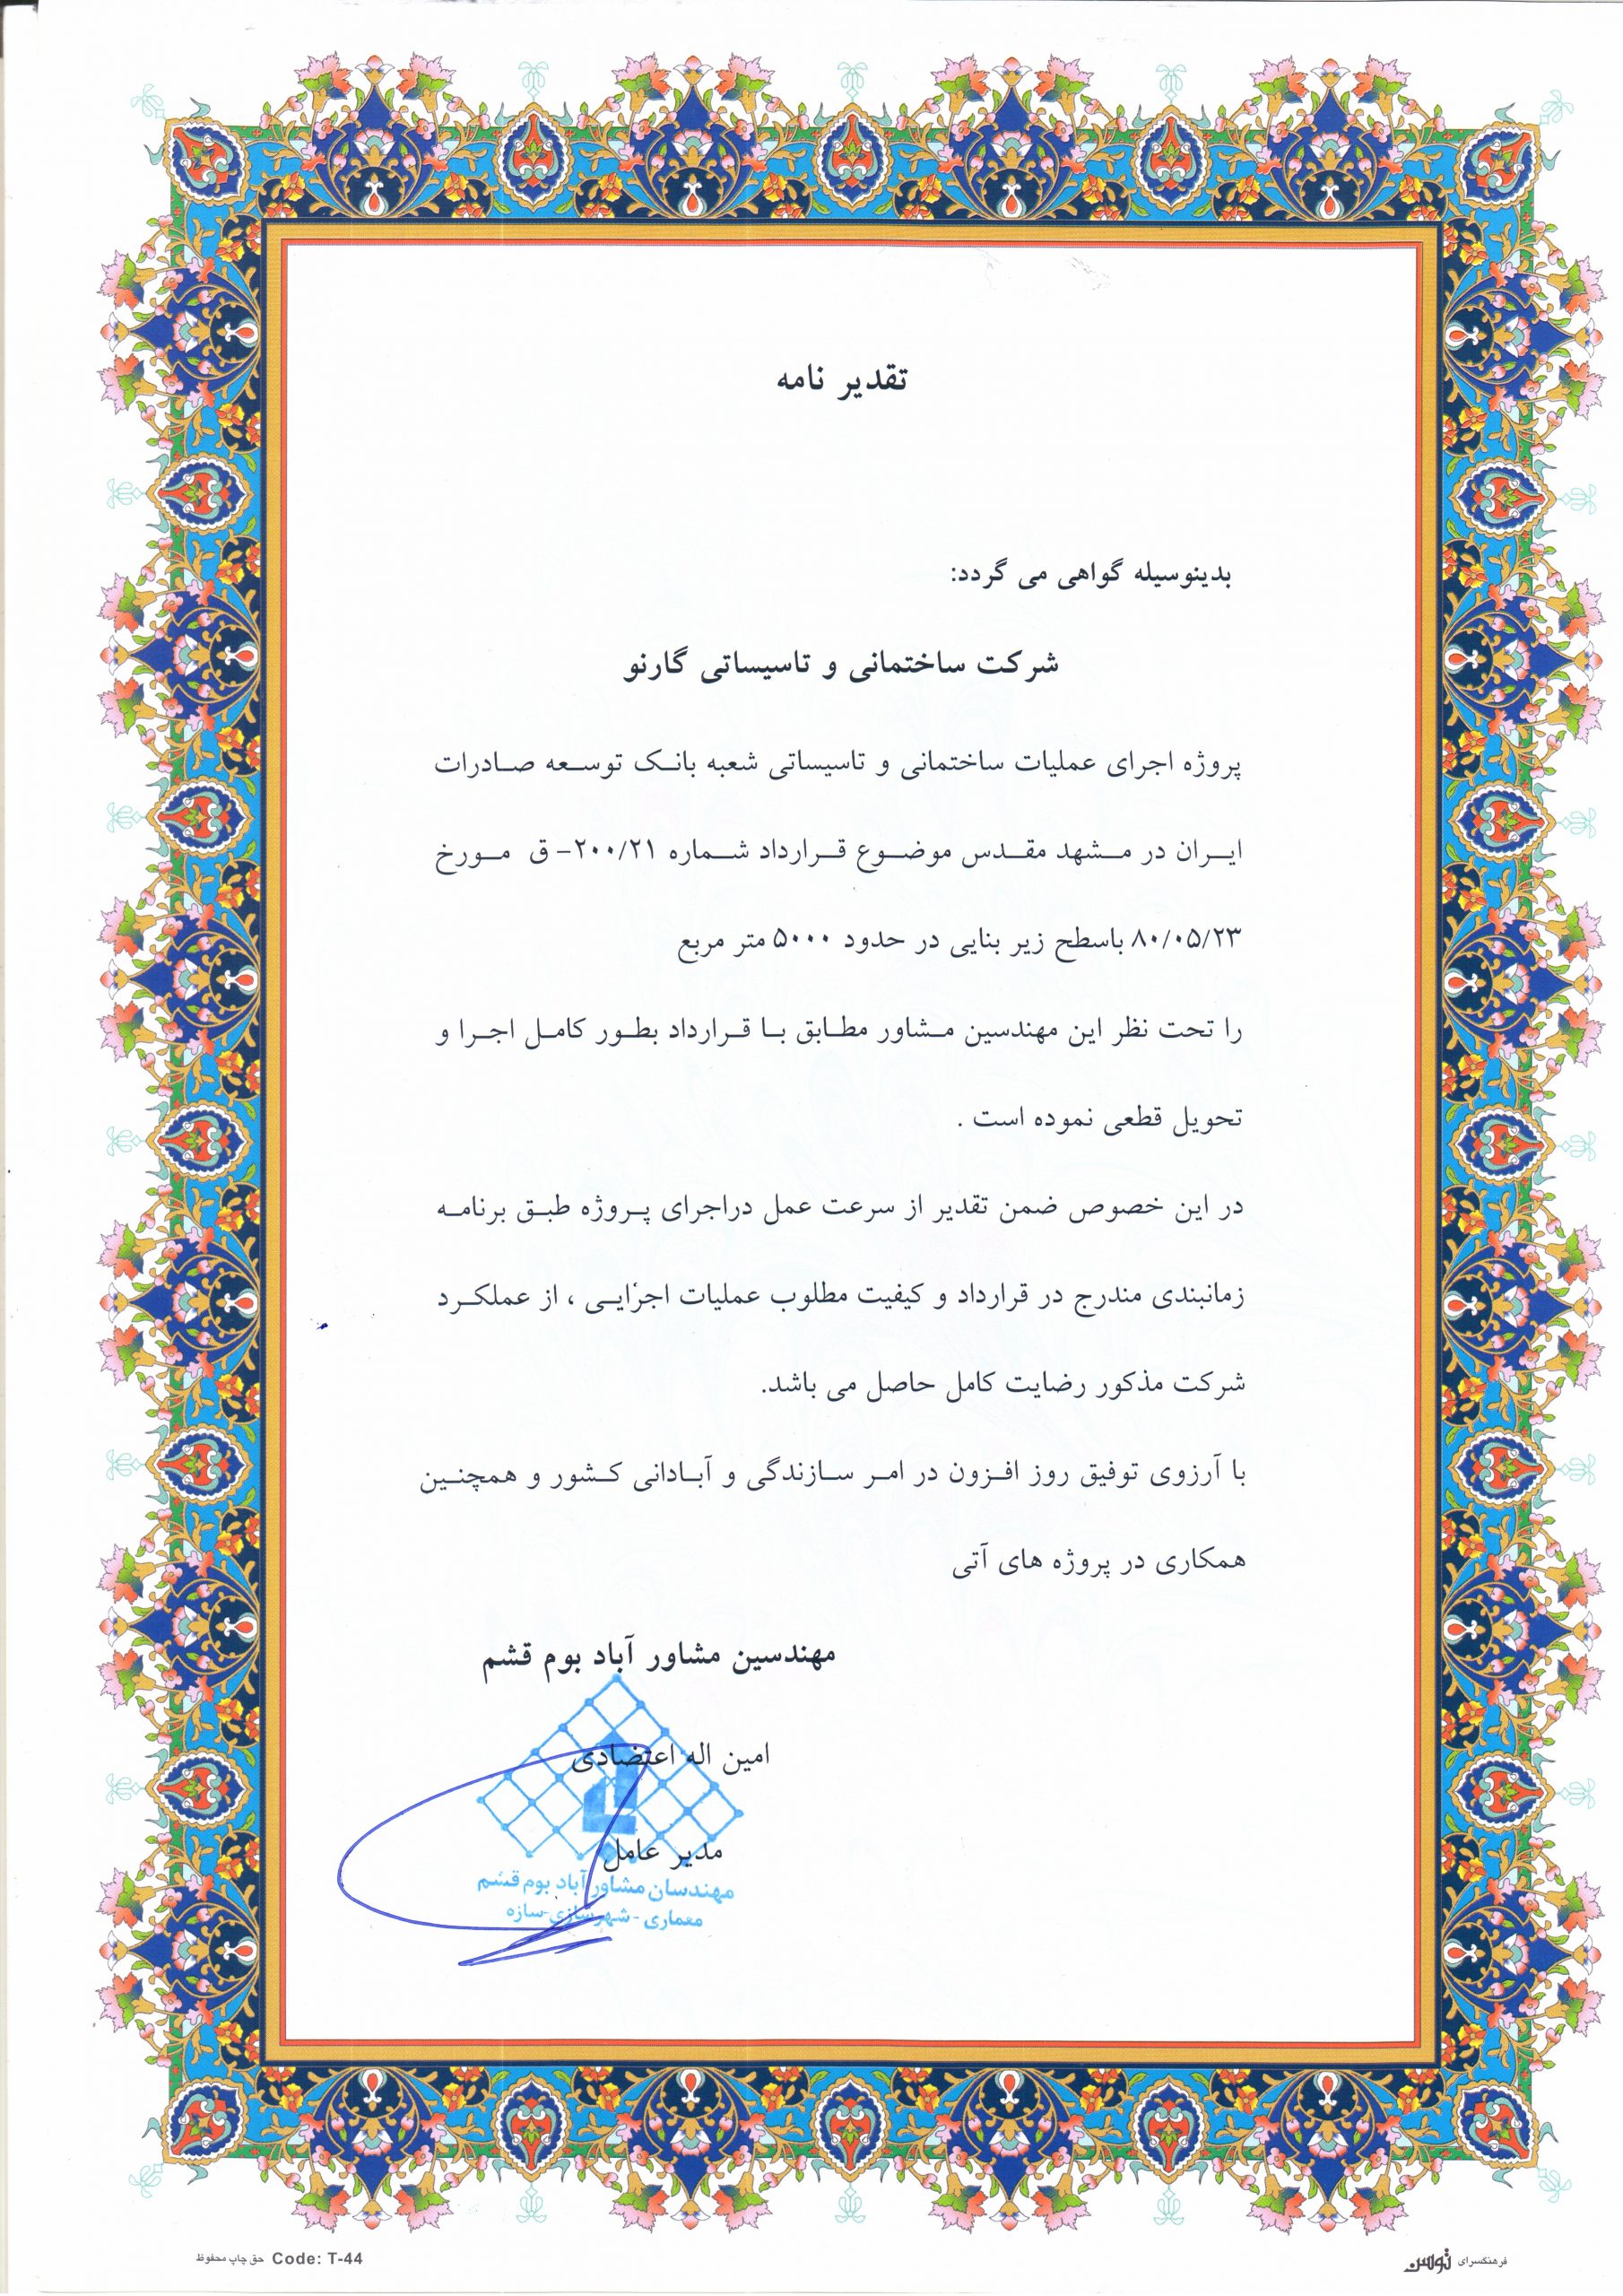 تقدیر نامه
بدینوسیله گواهی می گردد:
شرکت ساختمانی و تاسیساتی گارنو
پروژه اجرای عملیات ساختمانی و تاسیساتی شعبه بانک توسعه صادرات
ایران در مشهد مقدس موضوع قرارداد شماره ۲۰۰/۲۱- ق مورخ
۸۰/۰۵/۲۳ باسطح زیر بنایی در حدود ۵۰۰۰ متر مربع
را تحت نظر این مهندسین مشاور مطابق با قرارداد بطور کامل اجرا و
تحویل قطعی نموده است .
در این خصوص ضمن تقدیر از سرعت عمل دراجرای پروژه طبق برنامه
زمانبندی مندرج در قرارداد و کیفیت مطلوب عملیات اجرایی ، از عملکرد
شرکت مذکور رضایت کامل حاصل می باشد.
با آرزوی توفیق روز افزون در امر سازندگی و آبادانی کشور و همچنین
همکاری در پروژه های آتی
مهندسین مشاور آباد بوم قشم
امین اله اعتضادی
مدیر عامل
مهندسان مشاور آباد بوم قشم
معماری - شهرسازی - سازه
فرهنگسرای توس
Code: T-44 حق چاپ محفوظ